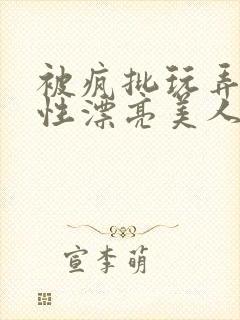 被疯批玩弄
性漂亮美人
宣李萌